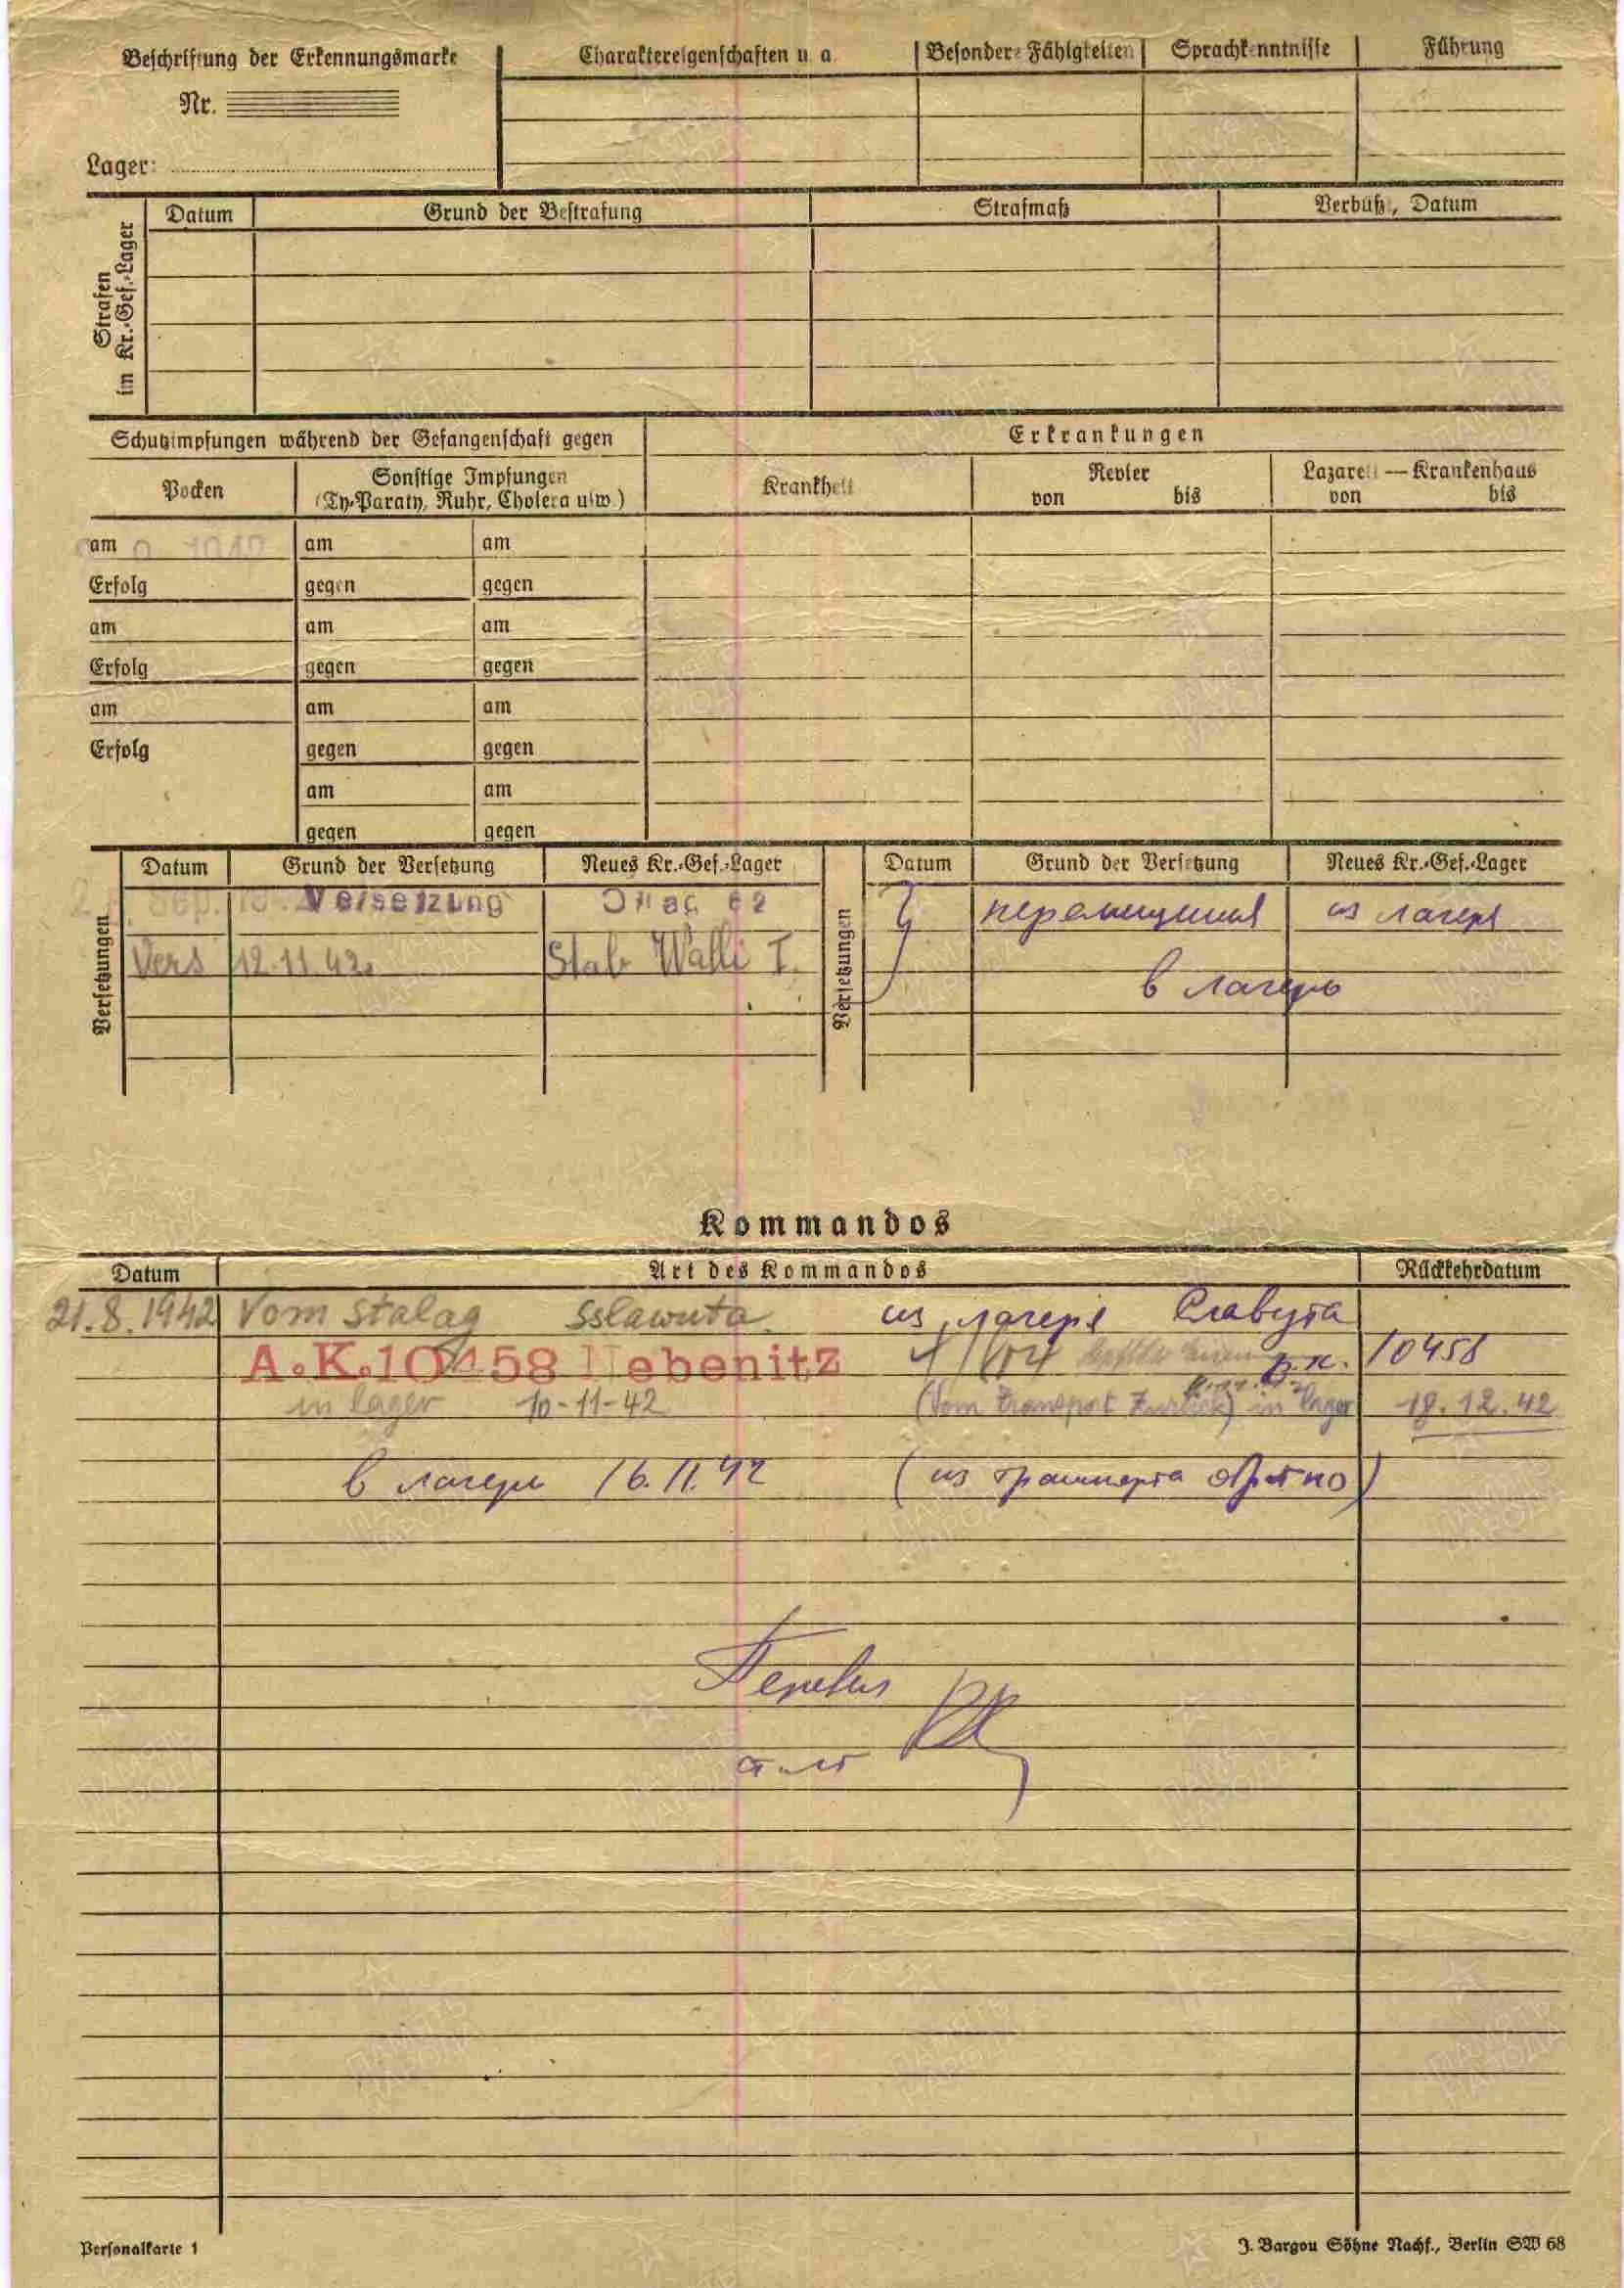 Beschriftung der Erkennungsmarke
Nr.
Lager:
Charaktereigenschaften u. a. Besondere Fähigkeiten Sprachkenntnisse Führung
Strafen im Kr.-Gef.-Lager
Datum Grund der Bestrafung Strafmaß Verbüßt, Datum
Schutzimpfungen während der Gefangenschaft gegen
Erkrankungen
Pocken
Sonstige Impfungen
(Ty-Paraty, Ruhr, Cholera usw.)
Krankheit
Revier
von bis
Lazarett — Krankenhaus
von bis
am 1942 am am
Erfolg gegen gegen
am am am
Erfolg gegen gegen
am am am
Erfolg gegen gegen
am am
gegen gegen
Versetzungen
Datum Grund der Versetzung Neues Kr.-Gef.-Lager
Sep. Versetzung
Vers 12.11.42. Stab Walli I.
Versetzungen
Datum Grund der Versetzung Neues Kr.-Gef.-Lager
перемещения из лагеря
в лагерь
Kommandos
Datum Art des Kommandos Rückkehrdatum
21.8.1942 Vom Stalag Sslawuta из лагеря Славута
A.K.10458 р.к. 10458
in lager 10-11-42 (Vom Transport Zurück) in lager 18.12.42
в лагерь 16.11.42 (из транспорта обратно)
Personalkarte 1
J. Bargou Söhne Nachf., Berlin SW 68